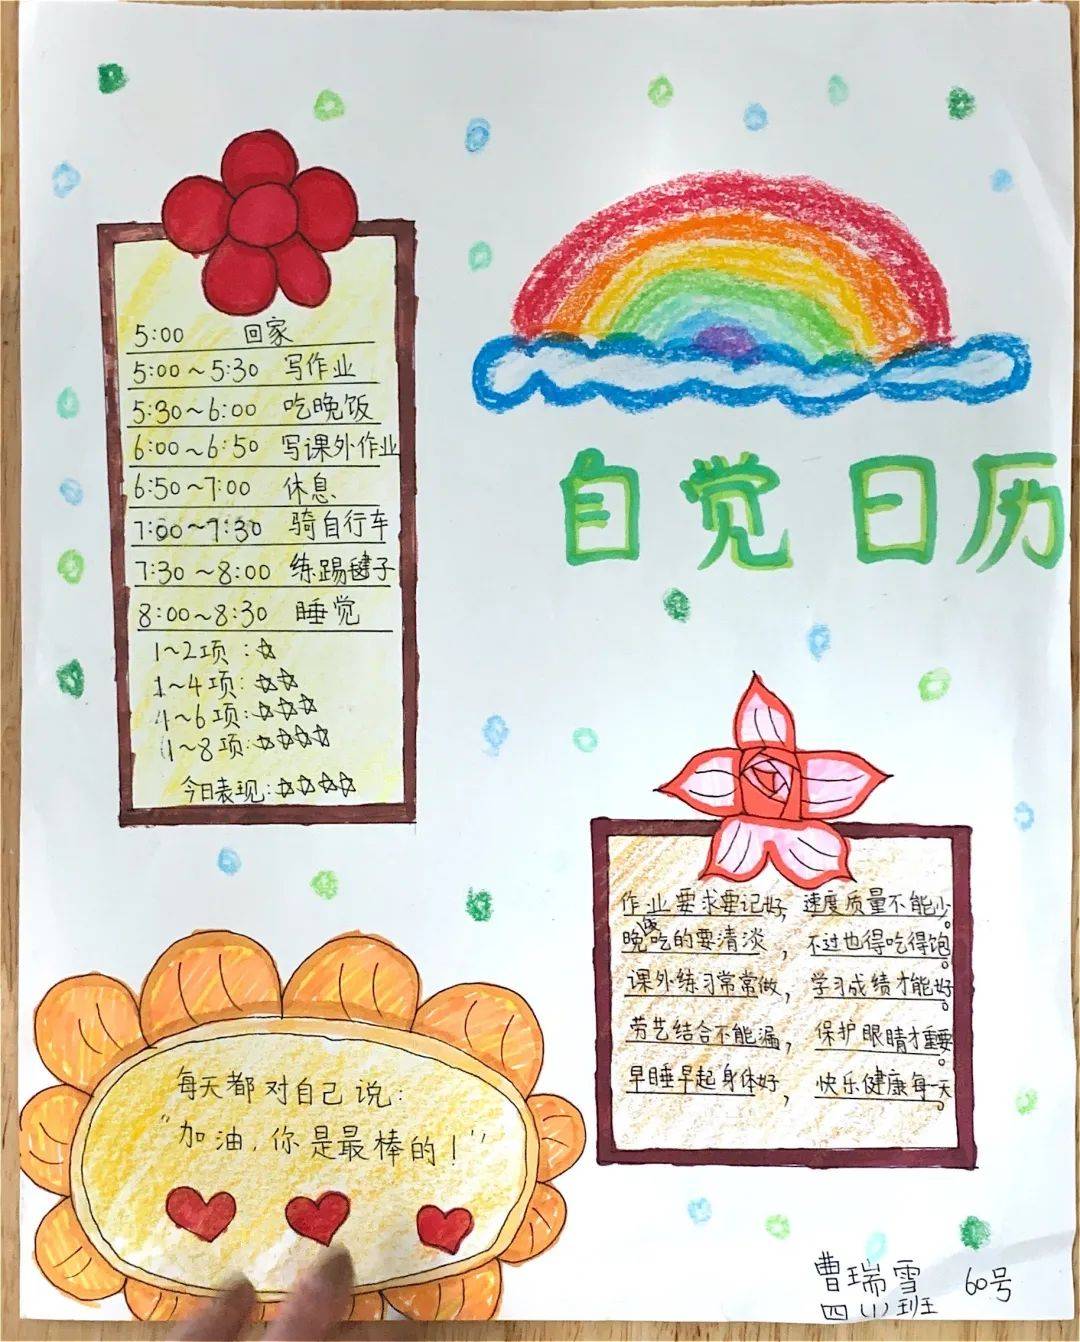 5:00 回家
5:00～5:30 写作业
5:30～6:00 吃晚饭
6:00～6:50 写课外作业
6:50～7:00 休息
7:00～7:30 骑自行车
7:30～8:00 练踢毽子
8:00～8:30 睡觉
1～2项：☆
1～4项：☆☆
1～6项：☆☆☆
1～8项：☆☆☆☆
今日表现：☆☆☆☆
自觉日历
作业要求要记好，速度质量不能少。
晚饭吃的要清淡，不过也得吃得饱。
课外练习常常做，学习成绩才能好。
劳艺结合不能漏，保护眼睛才重要。
早睡早起身体好，快乐健康每一天。
每天都对自己说：
“加油，你是最棒的！”
曹瑞雪 60号
四（1）班